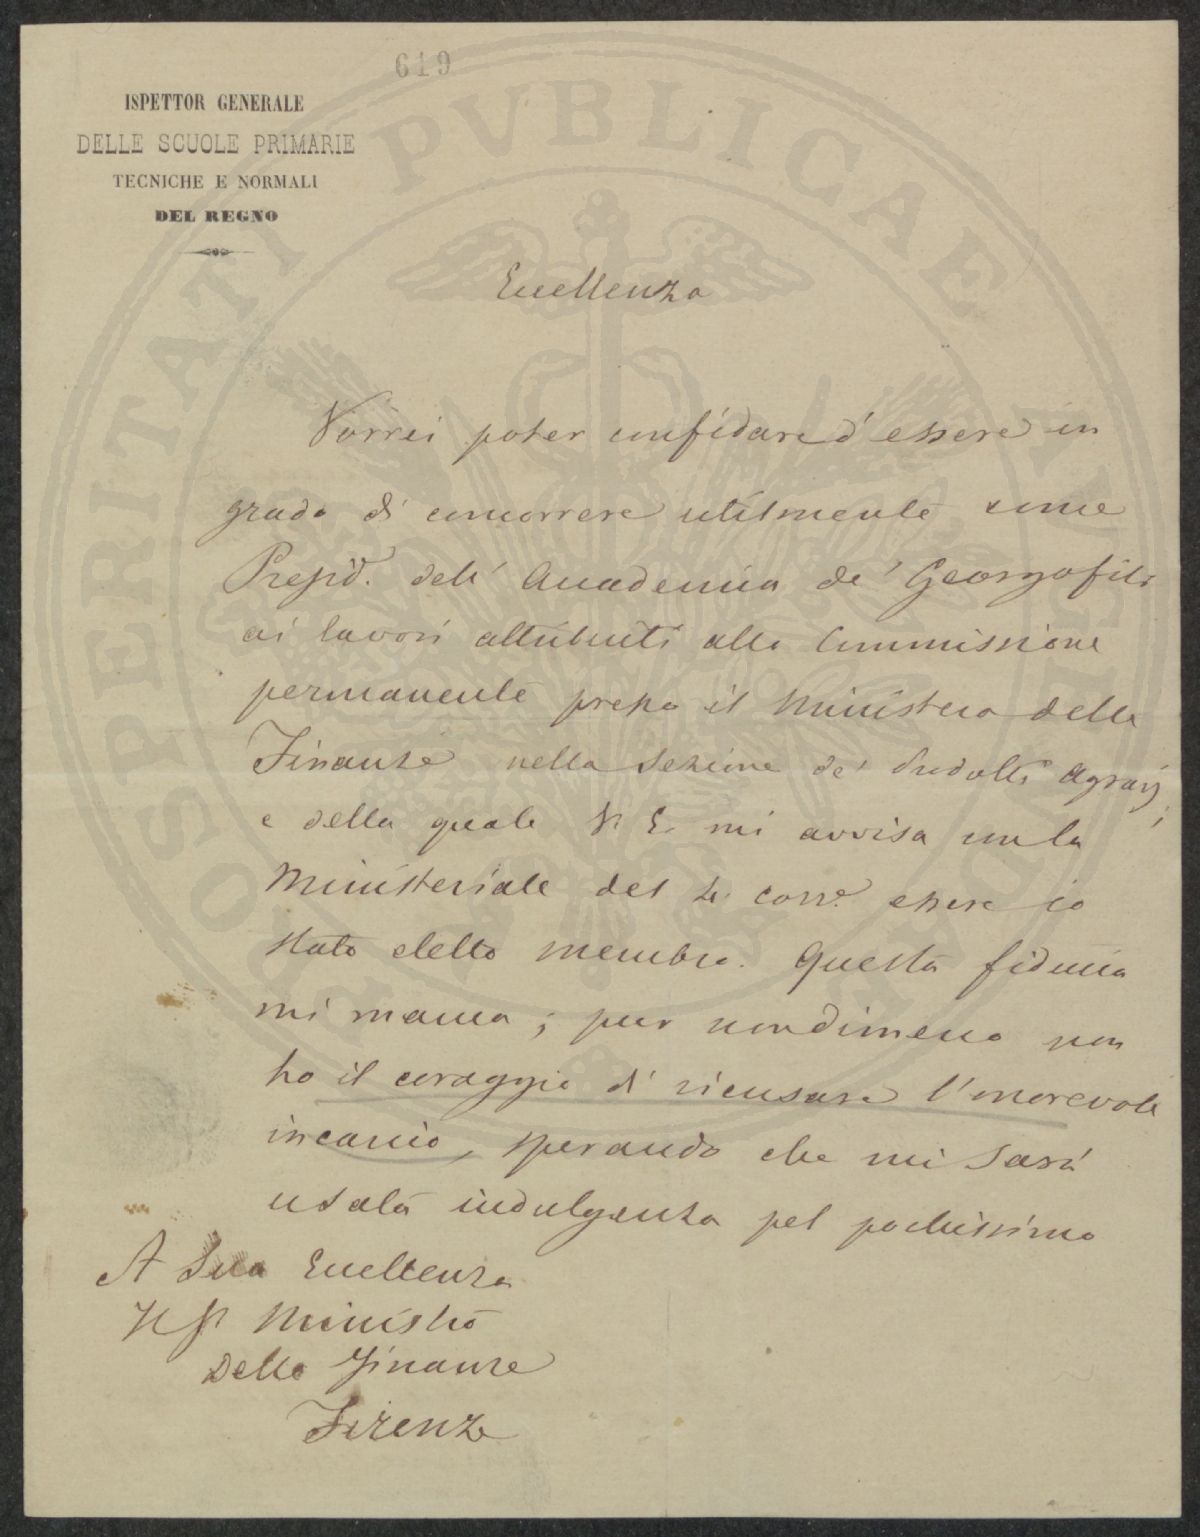 619
ISPETTOR GENERALE
DELLE SCUOLE PRIMARIE
TECNICHE E NORMALI
DEL REGNO
PROSPERITATI PVBLICAE AVGENDAE
Eccellenza
Vorrei poter confidare d'essere in
grado di concorrere utilmente come
Presid.te dell'Accademia de' Georgofili
ai lavori attribuiti alla Commissione
permanente presso il Ministero delle
Finanze nella Sezione de' Prodotti Agrarj,
e della quale V. E. mi avvisa con la
Ministeriale del corr.e essere io
stato eletto membro. Questa fiducia
mi manca; pur nondimeno non
ho il coraggio di ricusare l'onorevole
incarico, sperando che mi sarà
usata indulgenza pel pochissimo
A Sua Eccellenza
Il S.r Ministro
Delle Finanze
Firenze